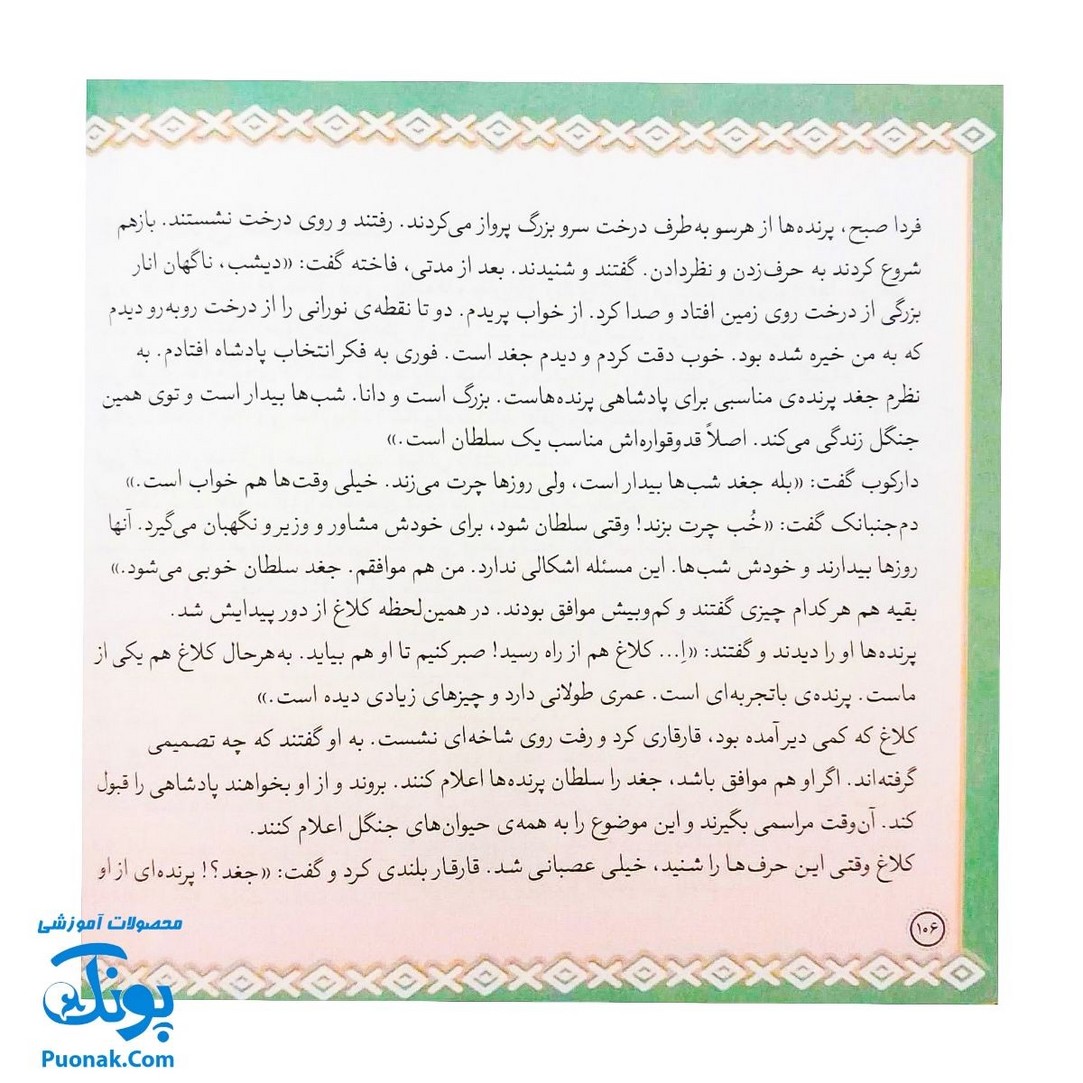 فردا صبح، پرنده‌ها از هرسو به‌طرف درخت سرو بزرگ پرواز می‌کردند. رفتند و روی درخت نشستند. بازهم
شروع کردند به حرف‌زدن و نظردادن. گفتند و شنیدند. بعد از مدتی، فاخته گفت: «دیشب، ناگهان انار
بزرگی از درخت روی زمین افتاد و صدا کرد. از خواب پریدم. دو تا نقطه‌ی نورانی را از درخت روبه‌رو دیدم
که به من خیره شده بود. خوب دقت کردم و دیدم جغد است. فوری به فکر انتخاب پادشاه افتادم. به
نظرم جغد پرنده‌ی مناسبی برای پادشاهی پرنده‌هاست. بزرگ است و دانا. شب‌ها بیدار است و توی همین
جنگل زندگی می‌کند. اصلاً قدوقواره‌اش مناسب یک سلطان است.»
دارکوب گفت: «بله جغد شب‌ها بیدار است، ولی روزها چرت می‌زند. خیلی وقت‌ها هم خواب است.»
دم‌جنبانک گفت: «خُب چرت بزند! وقتی سلطان شود، برای خودش مشاور و وزیر و نگهبان می‌گیرد. آنها
روزها بیدارند و خودش شب‌ها. این مسئله اشکالی ندارد. من هم موافقم. جغد سلطان خوبی می‌شود.»
بقیه هم هرکدام چیزی گفتند و کم‌وبیش موافق بودند. در همین‌لحظه کلاغ از دور پیدایش شد.
پرنده‌ها او را دیدند و گفتند: «اِ... کلاغ هم از راه رسید! صبر کنیم تا او هم بیاید. به‌هرحال کلاغ هم یکی از
ماست. پرنده‌ی باتجربه‌ای است. عمری طولانی دارد و چیزهای زیادی دیده است.»
کلاغ که کمی دیر آمده بود، قارقاری کرد و رفت روی شاخه‌ای نشست. به او گفتند که چه تصمیمی
گرفته‌اند. اگر او هم موافق باشد، جغد را سلطان پرنده‌ها اعلام کنند. بروند و از او بخواهند پادشاهی را قبول
کند. آن‌وقت مراسمی بگیرند و این موضوع را به همه‌ی حیوان‌های جنگل اعلام کنند.
کلاغ وقتی این حرف‌ها را شنید، خیلی عصبانی شد. قارقار بلندی کرد و گفت: «جغد؟! پرنده‌ای از او
۱۰۶
محصولات آموزشی
پونک
Puonak.Com